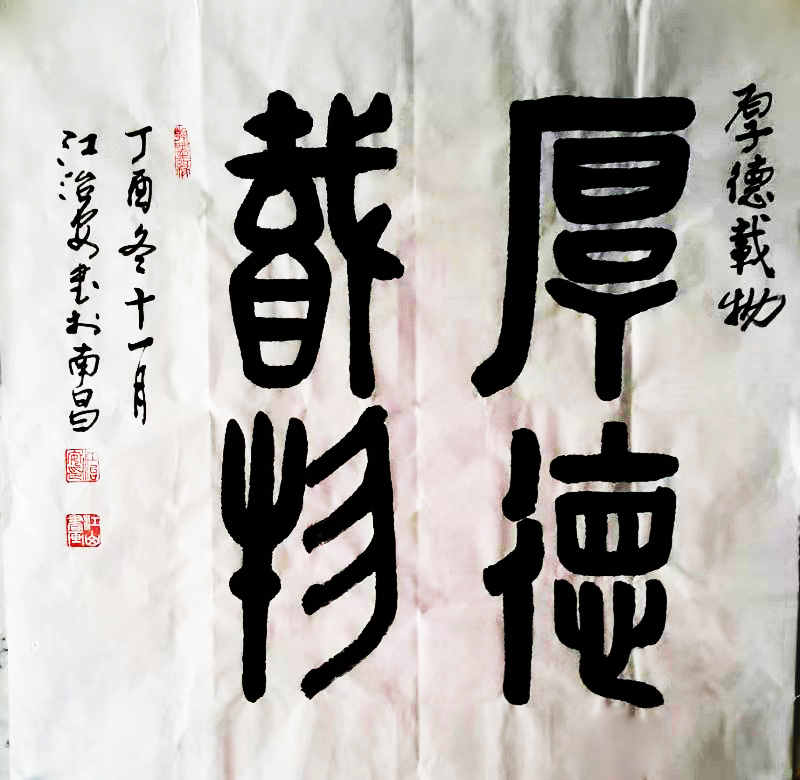 厚德載物
厚德
載物
丁酉冬十一月
江治安书於南昌